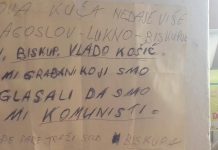 KUĆA NEDAJE VIŠE
AGOSLOV-LUKNO-BISKUPU
I, BISKUP. VLADO KOŠIĆ.
MI GRAĐANI KOJI SMO
GLASALI DA SMO
MI KOMUNISTI.
BISKUPU